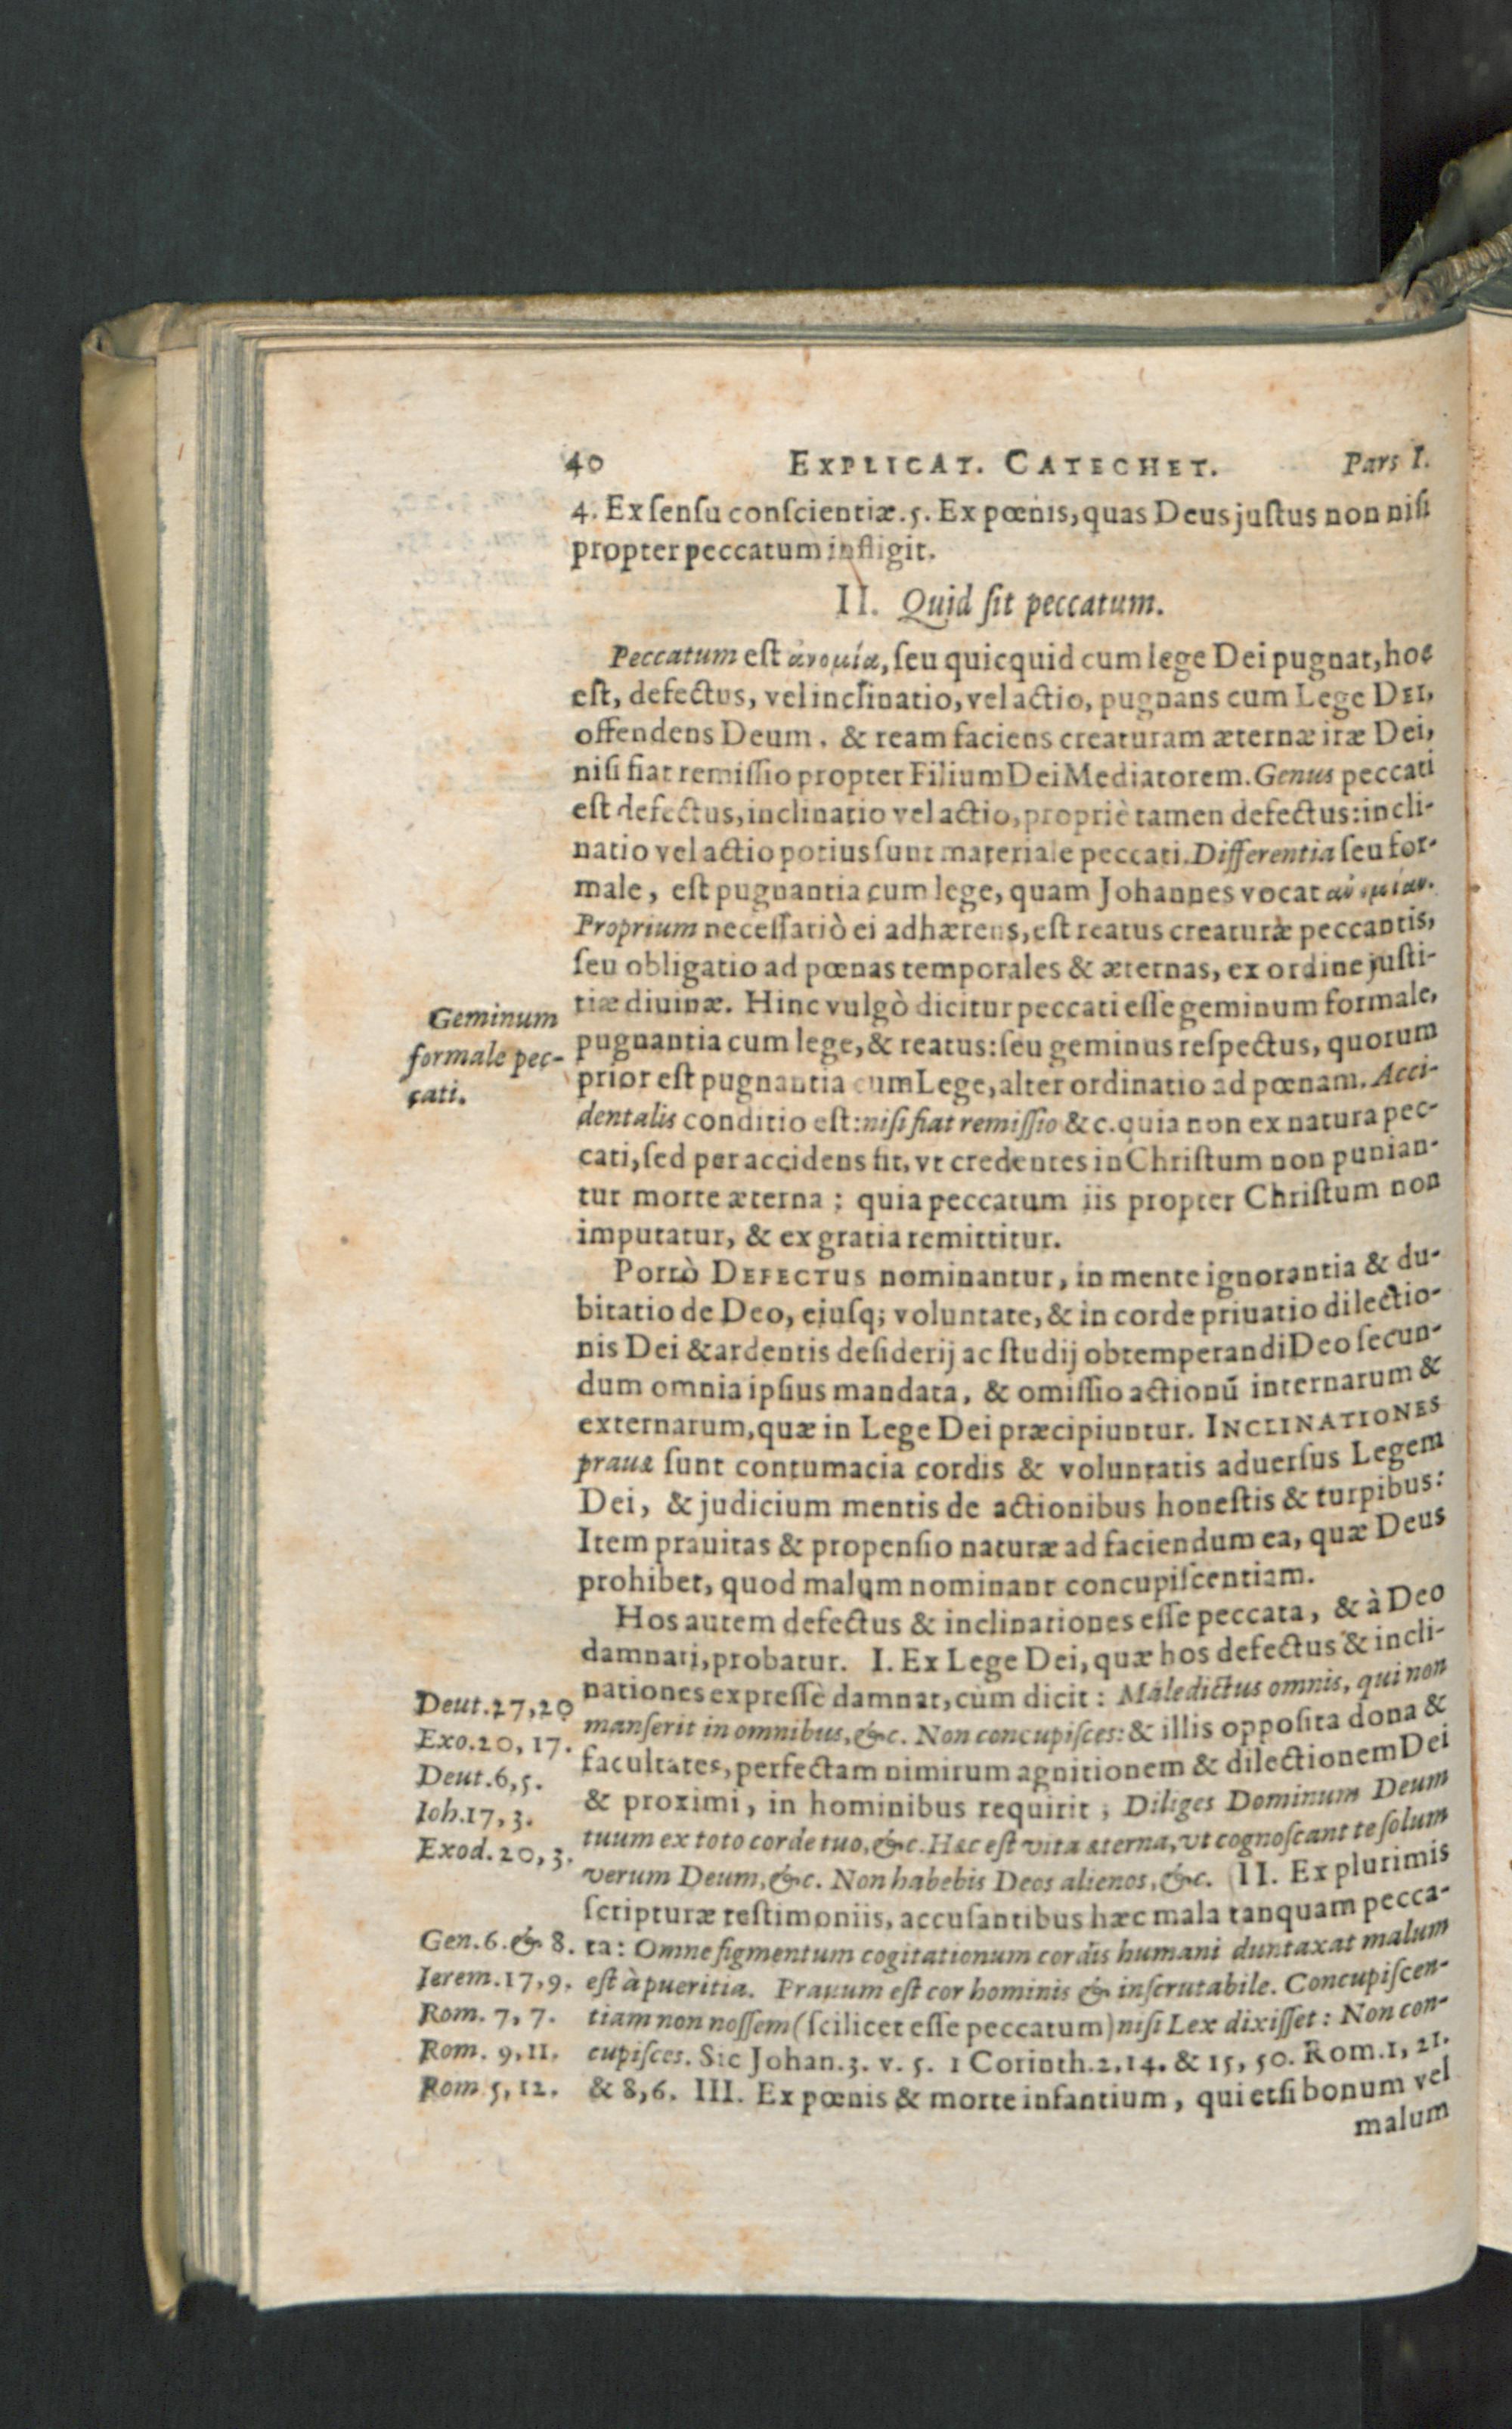 40 EXPLICAT. CATECHET. Pars I.
4. Ex ſenſu conſcientiæ. 5. Ex pœnis, quas Deus juſtus non niſi
propter peccatum infligit.
II. Quid ſit peccatum.
Peccatum eſt ἀνομία, ſeu quicquid cum lege Dei pugnat, hoc
eſt, defectus, vel inclinatio, vel actio, pugnans cum Lege DEI,
offendens Deum, & ream faciens creaturam æternæ iræ Dei,
niſi fiat remiſſio propter Filium Dei Mediatorem. Genus peccati
eſt defectus, inclinatio vel actio, propriè tamen defectus: incli-
natio vel actio potius ſunt materiale peccati. Differentia ſeu for-
male, eſt pugnantia cum lege, quam Johannes vocat
Proprium neceſſariò ei adhærens, eſt reatus creaturæ peccantis,
ſeu obligatio ad pœnas temporales & æternas, ex ordine juſti-
tiæ diuinæ. Hinc vulgò dicitur peccati eſſe geminum formale,
Geminum
formale pec-
cati.
pugnantia cum lege, & reatus: ſeu geminus reſpectus, quorum
prior eſt pugnantia cum Lege, alter ordinatio ad pœnam. Acci-
dentalis conditio eſt: niſi fiat remiſſio &c. quia non ex natura pec-
cati, ſed per accidens fit, vt credentes in Chriſtum non punian-
tur morte æterna; quia peccatum iis propter Chriſtum non
imputatur, & ex gratia remittitur.
Porrò DEFECTUS nominantur, in mente ignorantia & du-
bitatio de Deo, ejuſq; voluntate, & in corde priuatio dilectio-
nis Dei & ardentis deſiderij ac ſtudij obtemperandi Deo ſecun-
dum omnia ipſius mandata, & omiſſio actionũ internarum &
externarum, quæ in Lege Dei præcipiuntur. INCLINATIONES
prauæ ſunt contumacia cordis & voluntatis aduerſus Legem
Dei, & judicium mentis de actionibus honeſtis & turpibus:
Item prauitas & propenſio naturæ ad faciendum ea, quæ Deus
prohibet, quod malum nominant concupiſcentiam.
Hos autem defectus & inclinationes eſſe peccata, & à Deo
damnari, probatur. I. Ex Lege Dei, quæ hos defectus & incli-
nationes expreſſè damnat, cùm dicit: Maledictus omnis, qui non
Deut. 27, 20
manſerit in omnibus, &c. Non concupiſces: & illis oppoſita dona &
Exo. 20, 17.
facultates, perfectam nimirum agnitionem & dilectionem Dei
Deut. 6, 5.
& proximi, in hominibus requirit; Diliges Dominum Deum
Ioh. 17, 3.
tuum ex toto corde tuo, &c. Hæc eſt vita æterna, vt cognoſcant te ſolum
Exod. 20, 3.
verum Deum, &c. Non habebis Deos alienos, &c. II. Ex plurimis
ſcripturæ teſtimoniis, accuſantibus hæc mala tanquam pecca-
Gen. 6. & 8.
ta: Omne figmentum cogitationum cordis humani duntaxat malum
Ierem. 17, 9.
eſt à pueritia. Prauum eſt cor hominis & inſcrutabile. Concupiſcen-
Rom. 7, 7.
tiam non noſſem (ſcilicet eſſe peccatum) niſi Lex dixiſſet: Non con-
Rom. 9, 11.
cupiſces. Sic Johan. 3. v. 5. 1 Corinth. 2, 14. & 15, 50. Rom. 1, 21.
Rom 5, 12.
& 8, 6. III. Ex pœnis & morte infantium, qui etſi bonum vel
malum